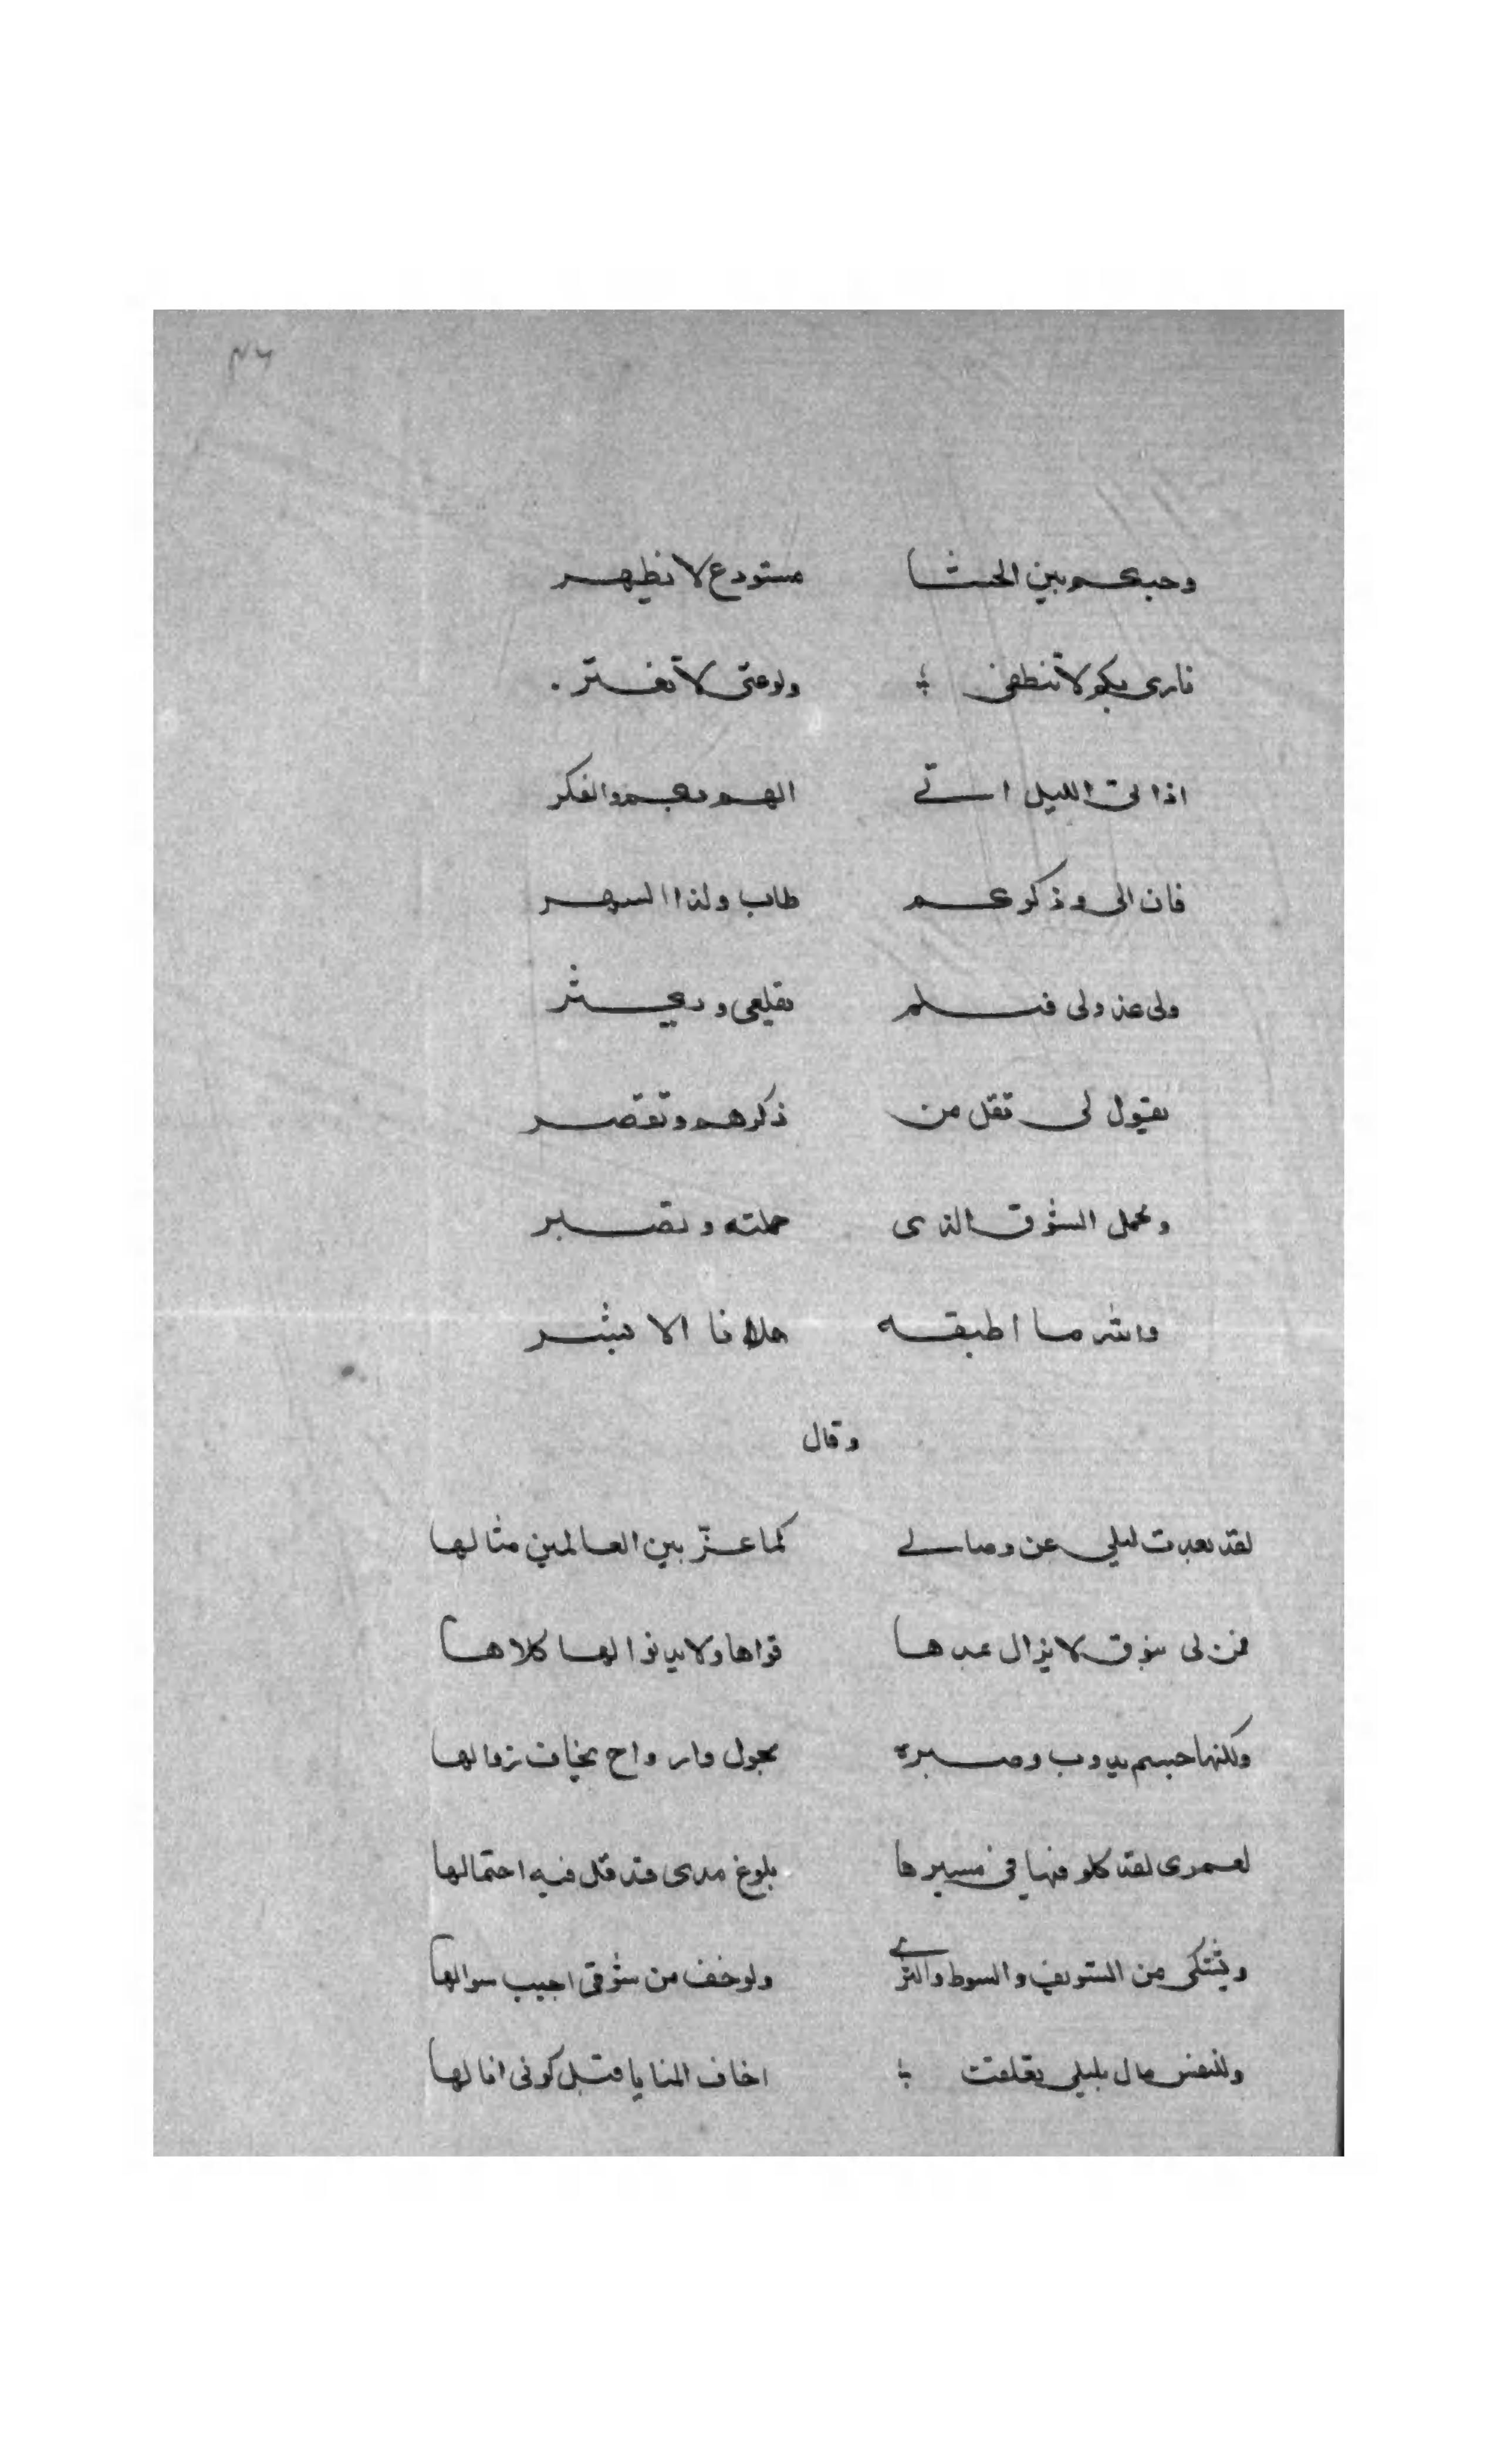 ٤٦
وحبكم بين الحشا مستودع لا يظهر
نارى بكم لا تنطفى ولوعتى لا تفتر
اذا اتى الليل اتى الهم معه والفكر
فان الى وذكركم طاب ولذا السهر
ولى عذولى فلم
يقول لى تقل من ذكرهم وتقصر
وتحمل الشوق الذى حملته وتصبر
والله ما اطيقه هل انا الا بشر
وقال
لقد بعدت ليلى عن وصالى كما عز بين العالمين مثالها
فمن لى بنوق لا يزال يمدها قواها ولا يدنوا لها كلالها
ولكنها جسم يذوب وصبره يحول وارواح يخاف زوالها
لعمرى لقد كلو منها فى مسيرها بلوغ مدى قد قل فيه احتمالها
وتشتكى من التسويف والسوط والثرى ولو خفف من شوقى اجيب سوالها
وللنفس مال بليلى تعلقت اخاف المنايا قبل كونى انالها